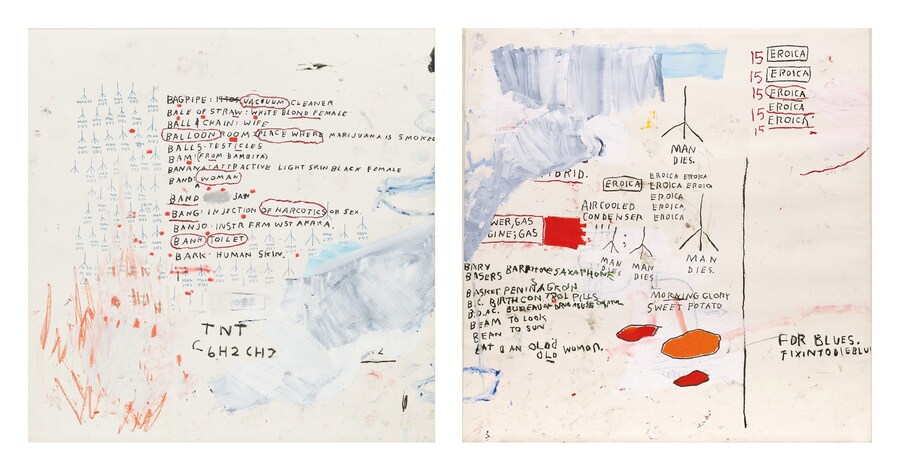 BAGPIPE: VACUUM CLEANER
BALE OF STRAW: WHITE BLOND FEMALE
BALL & CHAIN: WIFE
BALLOON ROOM: PLACE WHERE MARIJUANA IS SMOKE
BALLS: TESTICLES
BAM: (FROM BAMBITA)
BANANA: ATTRACTIVE LIGHT SKIN BLACK FEMALE
BAND: WOMAN
BAND JAM
BANG: INJECTION OF NARCOTICS OR SEX.
BANJO: INSTR. FRM WST AFRIKA.
BANK: TOILET
BARK: HUMAN SKIN.
TNT
C6H2CH3
15 EROICA
15 EROICA
15 EROICA
15 EROICA
15 EROICA
MAN
DIES.
BRID.
EROICA
EROICA EROICA
EROICA EROICA
EROICA
EROICA
EROICA
AIRCOOLED
CONDENSER
WER, GAS
GINE; GAS
MAN
DIES.
MAN
DIES.
MAN
DIES.
BARY BARITONE SAXAPHONE
BASERS
BASKET
B.C. BIRTH CONTROL PILLS
B.D.A.C. BUREAU OF DRUG ABUSE CONTROL
BEAM TO LOOK
BEAN TO SUN
EAT AN OLD
OLD WOMAN.
MORNING GLORY
SWEET POTATO
FOR BLUES.
FIXINTODIEBLU